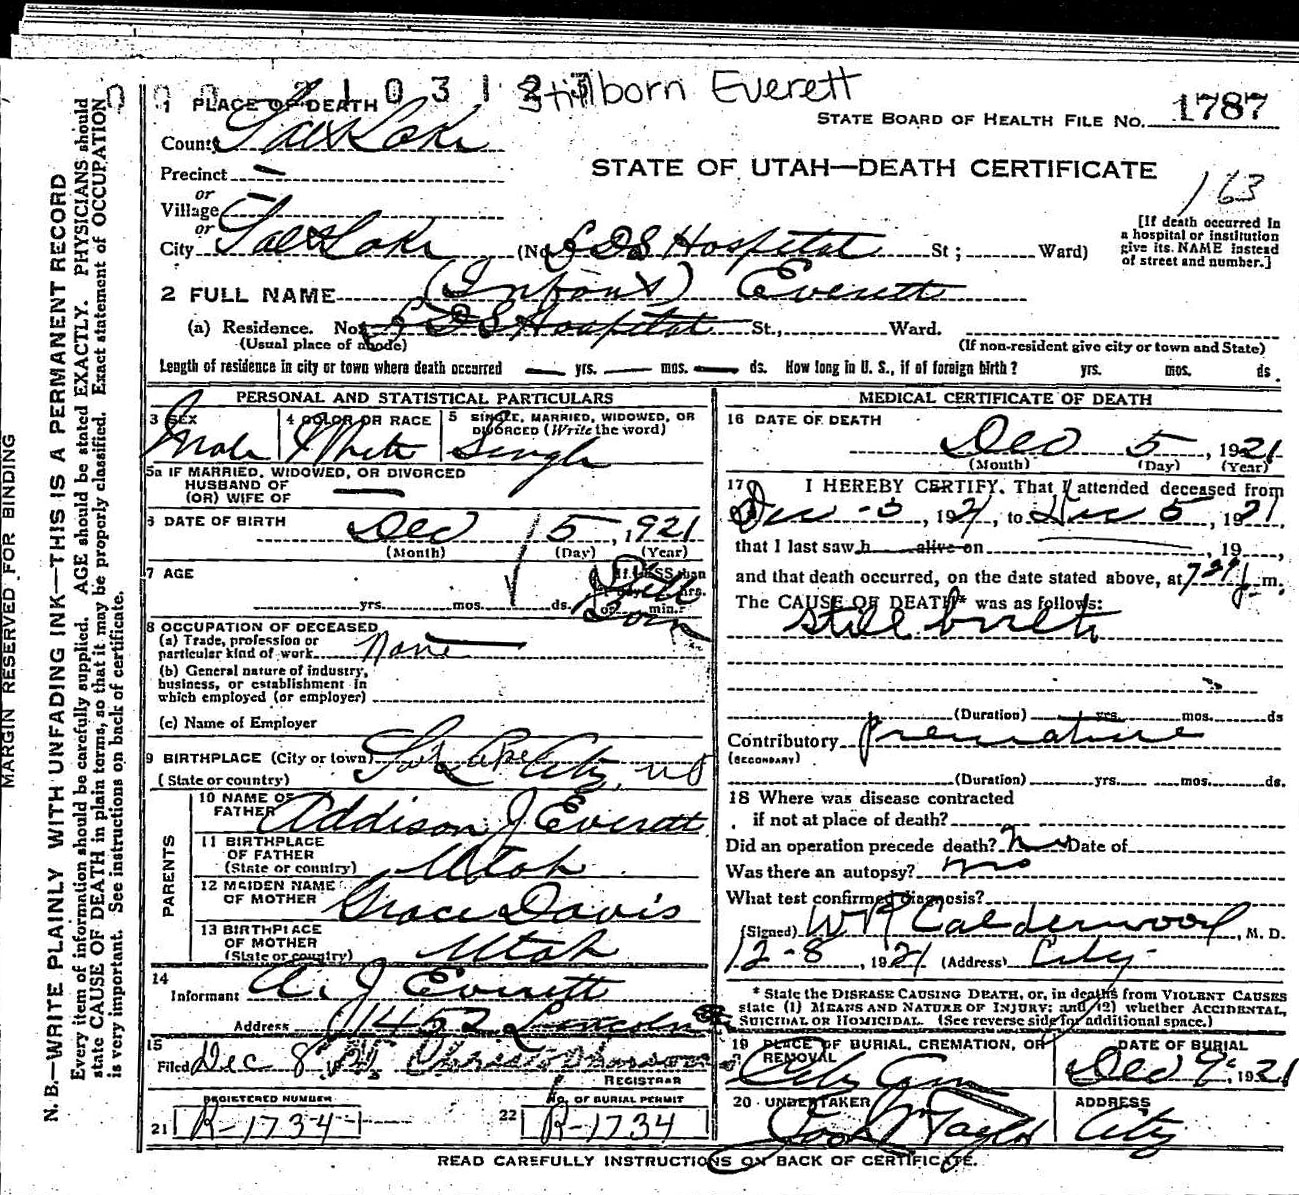 2103123 Stillborn Everett
1 PLACE OF DEATH
STATE BOARD OF HEALTH FILE NO. 1787
County Salt Lake
STATE OF UTAH—DEATH CERTIFICATE
Precinct —
163
or
Village —
or
City Salt Lake (No. LDS Hospital St ; Ward)
[If death occurred in
a hospital or institution
give its NAME instead
of street and number.]
2 FULL NAME (Infant) Everett
(a) Residence. No. LDS Hospital St., Ward.
(Usual place of abode) (If non-resident give city or town and State)
Length of residence in city or town where death occurred — yrs. — mos. — ds. How long in U. S., if of foreign birth? yrs. mos. ds.
MARGIN RESERVED FOR BINDING
N. B.—WRITE PLAINLY WITH UNFADING INK—THIS IS A PERMANENT RECORD
Every item of information should be carefully supplied. AGE should be stated EXACTLY. PHYSICIANS should
state CAUSE OF DEATH in plain terms, so that it may be properly classified. Exact statement of OCCUPATION
is very important. See instructions on back of certificate.
PERSONAL AND STATISTICAL PARTICULARS
3 SEX 4 COLOR OR RACE 5 SINGLE, MARRIED, WIDOWED, OR
DIVORCED (Write the word)
Male White Single
5a IF MARRIED, WIDOWED, OR DIVORCED
HUSBAND OF
(OR) WIFE OF —
6 DATE OF BIRTH Dec 5, 1921
(Month) (Day) (Year)
7 AGE If LESS than
yrs. mos. ds. or min.
Still
Born
8 OCCUPATION OF DECEASED
(a) Trade, profession or
particular kind of work None
(b) General nature of industry,
business, or establishment in
which employed (or employer)
(c) Name of Employer
9 BIRTHPLACE (City or town) Salt Lake City,
(State or country)
PARENTS
10 NAME OF
FATHER Addison J Everett
11 BIRTHPLACE
OF FATHER
(State or country) Utah
12 MAIDEN NAME
OF MOTHER Grace Davis
13 BIRTHPLACE
OF MOTHER
(State or country) Utah
14
Informant A. J Everett
Address 1452 Lincoln
15
Filed Dec 8
REGISTRAR
REGISTERED NUMBER No. OF BURIAL PERMIT
21 R-1734 22 R-1734
MEDICAL CERTIFICATE OF DEATH
16 DATE OF DEATH
Dec 5, 1921
(Month) (Day) (Year)
17 I HEREBY CERTIFY, That I attended deceased from
Dec 5, 1921, to Dec 5, 1921
that I last saw h alive on , 19 ,
and that death occurred, on the date stated above, at m.
The CAUSE OF DEATH* was as follows:
Still birth
(Duration) yrs. mos. ds
Contributory premature
(SECONDARY)
(Duration) yrs. mos. ds.
18 Where was disease contracted
if not at place of death?
Did an operation precede death? No Date of
Was there an autopsy? no
What test confirmed diagnosis?
(Signed) W R Calderwood, M. D.
12-8, 1921 (Address) City
* State the DISEASE CAUSING DEATH, or, in deaths from VIOLENT CAUSES
state (1) MEANS AND NATURE OF INJURY; and (2) whether ACCIDENTAL,
SUICIDAL OR HOMICIDAL. (See reverse side for additional space.)
19 PLACE OF BURIAL, CREMATION, OR
REMOVAL
DATE OF BURIAL
City Cem Dec 9, 1921
20 UNDERTAKER ADDRESS
Taylor City
READ CAREFULLY INSTRUCTIONS ON BACK OF CERTIFICATE.